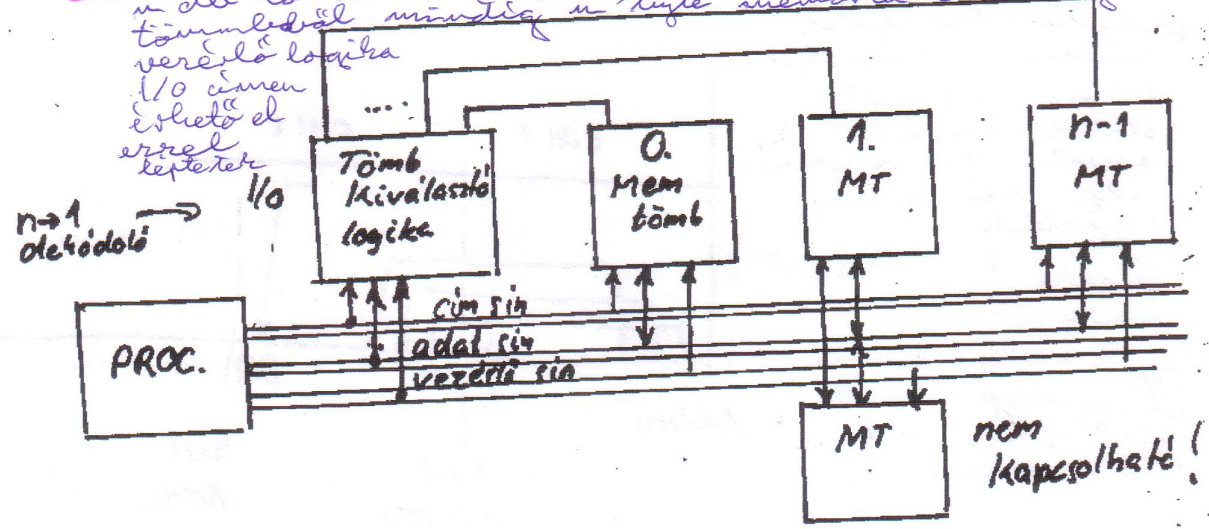 tömmből mindig n byte
vezérlő logika
I/O címen
érhető el
ezzel
léptetek
....
I/O
Tömb
kiválasztó
logika
0.
Mem
tömb
1.
MT
n-1
MT
n→1
dekódoló
PROC.
cím sin
adat sin
vezérlő sin
MT
nem
kapcsolható!